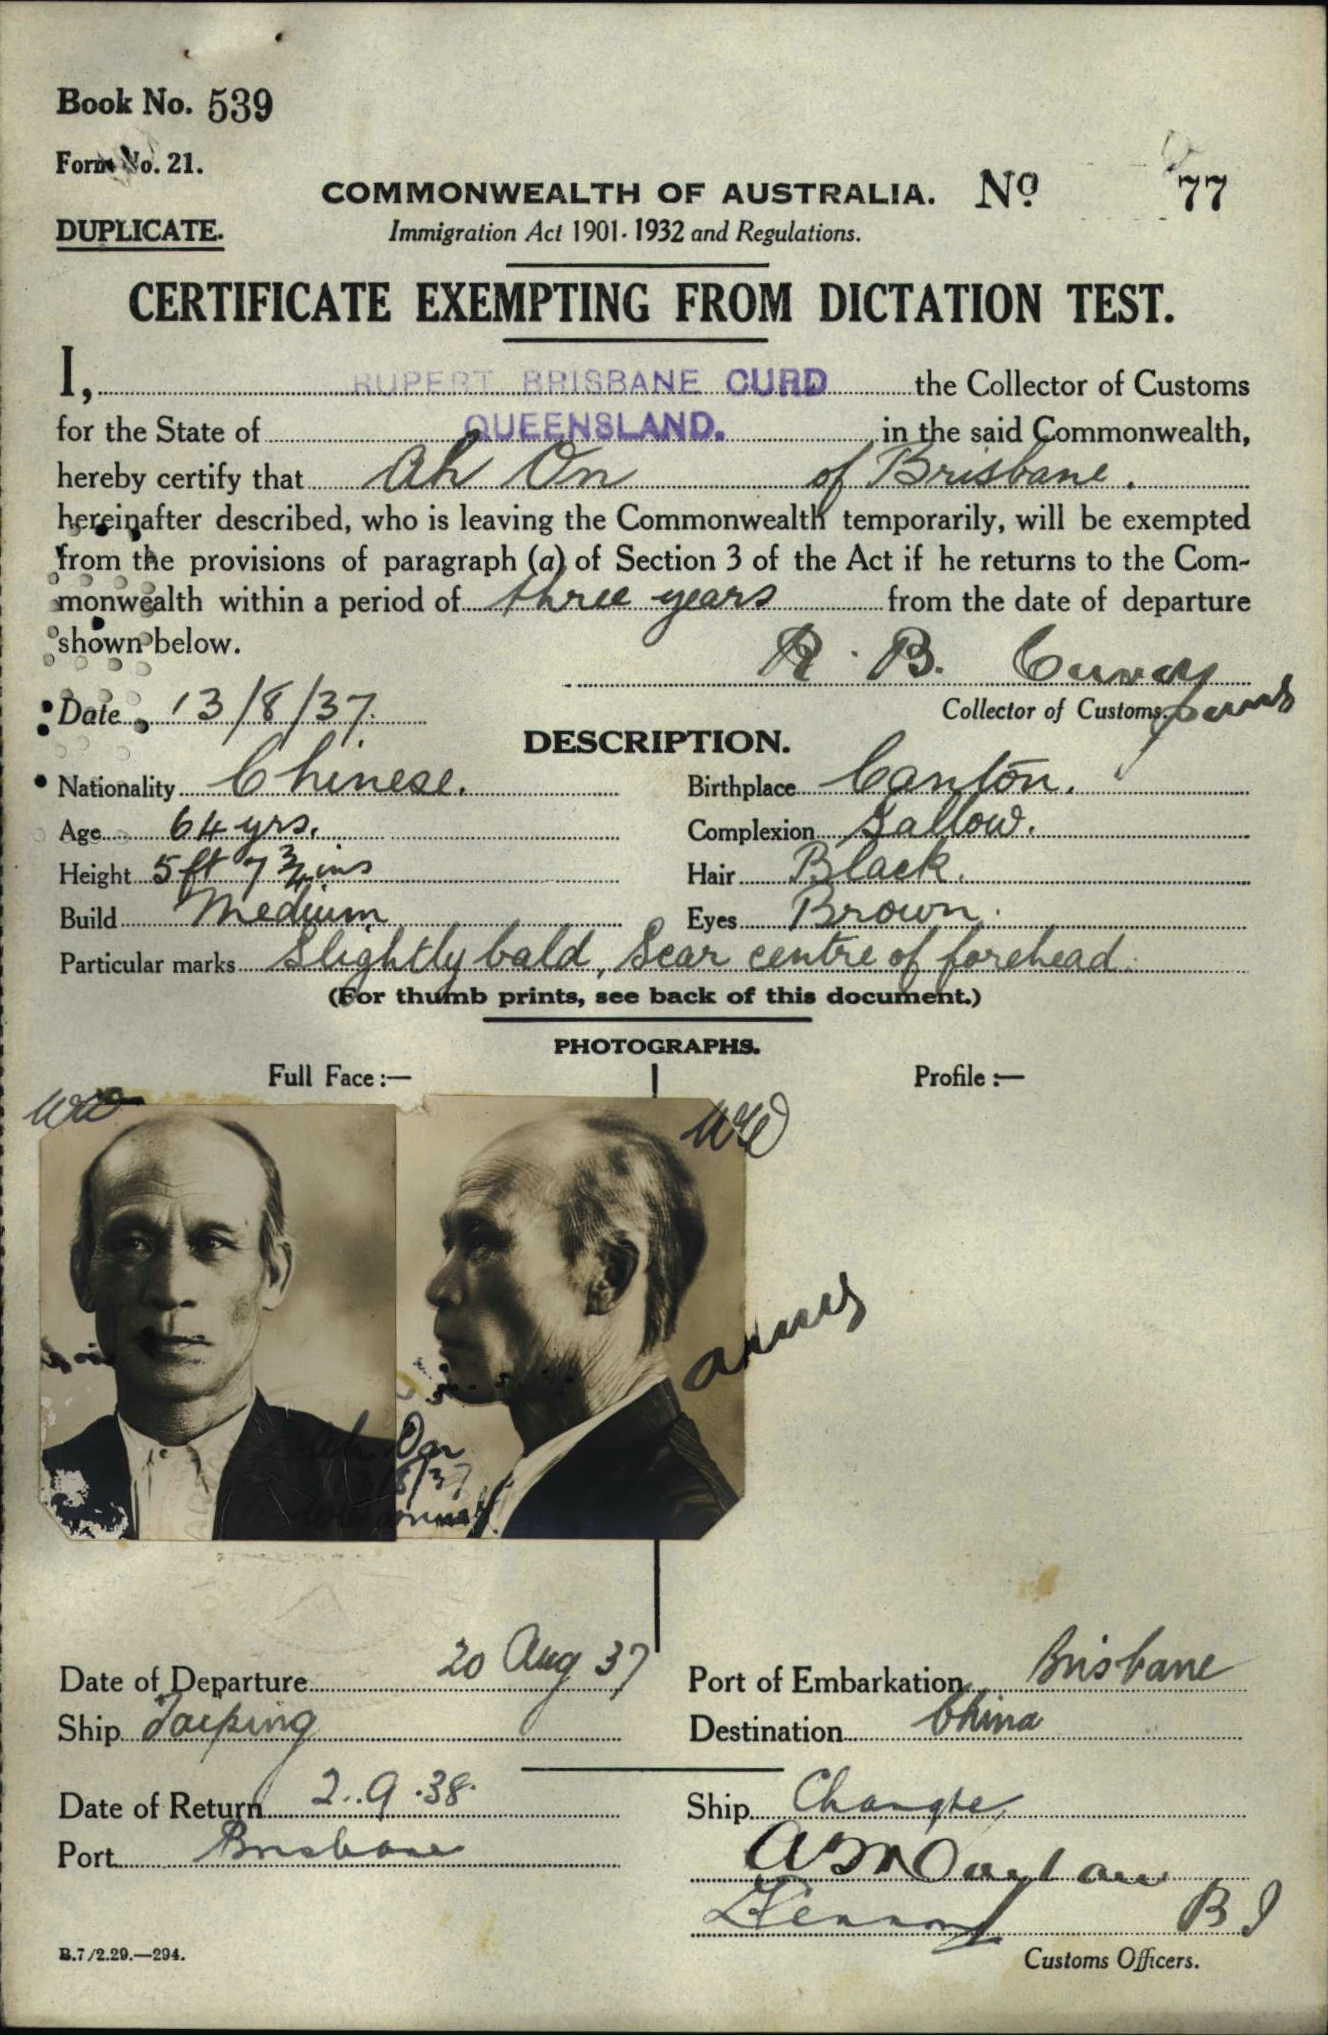 Book No. 539
Form No. 21.
COMMONWEALTH OF AUSTRALIA. No 77
DUPLICATE.
Immigration Act 1901-1932 and Regulations.
CERTIFICATE EXEMPTING FROM DICTATION TEST.
I, RUPERT BRISBANE CURD the Collector of Customs
for the State of QUEENSLAND. in the said Commonwealth,
hereby certify that Ah On of Brisbane.
hereinafter described, who is leaving the Commonwealth temporarily, will be exempted
from the provisions of paragraph (a) of Section 3 of the Act if he returns to the Com-
monwealth within a period of three years from the date of departure
shown below.
R. B. Curd
Date 13/8/37.
Collector of Customs.
DESCRIPTION.
Nationality Chinese. Birthplace Canton.
Age 64 yrs. Complexion Sallow.
Height 5 ft 7 3/4 ins Hair Black.
Build Medium Eyes Brown.
Particular marks Slightly bald, Scar centre of forehead.
(For thumb prints, see back of this document.)
PHOTOGRAPHS.
Full Face :— Profile :—
Ah On
Date of Departure 20 Aug 37 Port of Embarkation Brisbane
Ship Taiping Destination China
Date of Return 2.9.38. Ship Changte
Port Brisbane
B.7/2.29.—294.
Customs Officers.